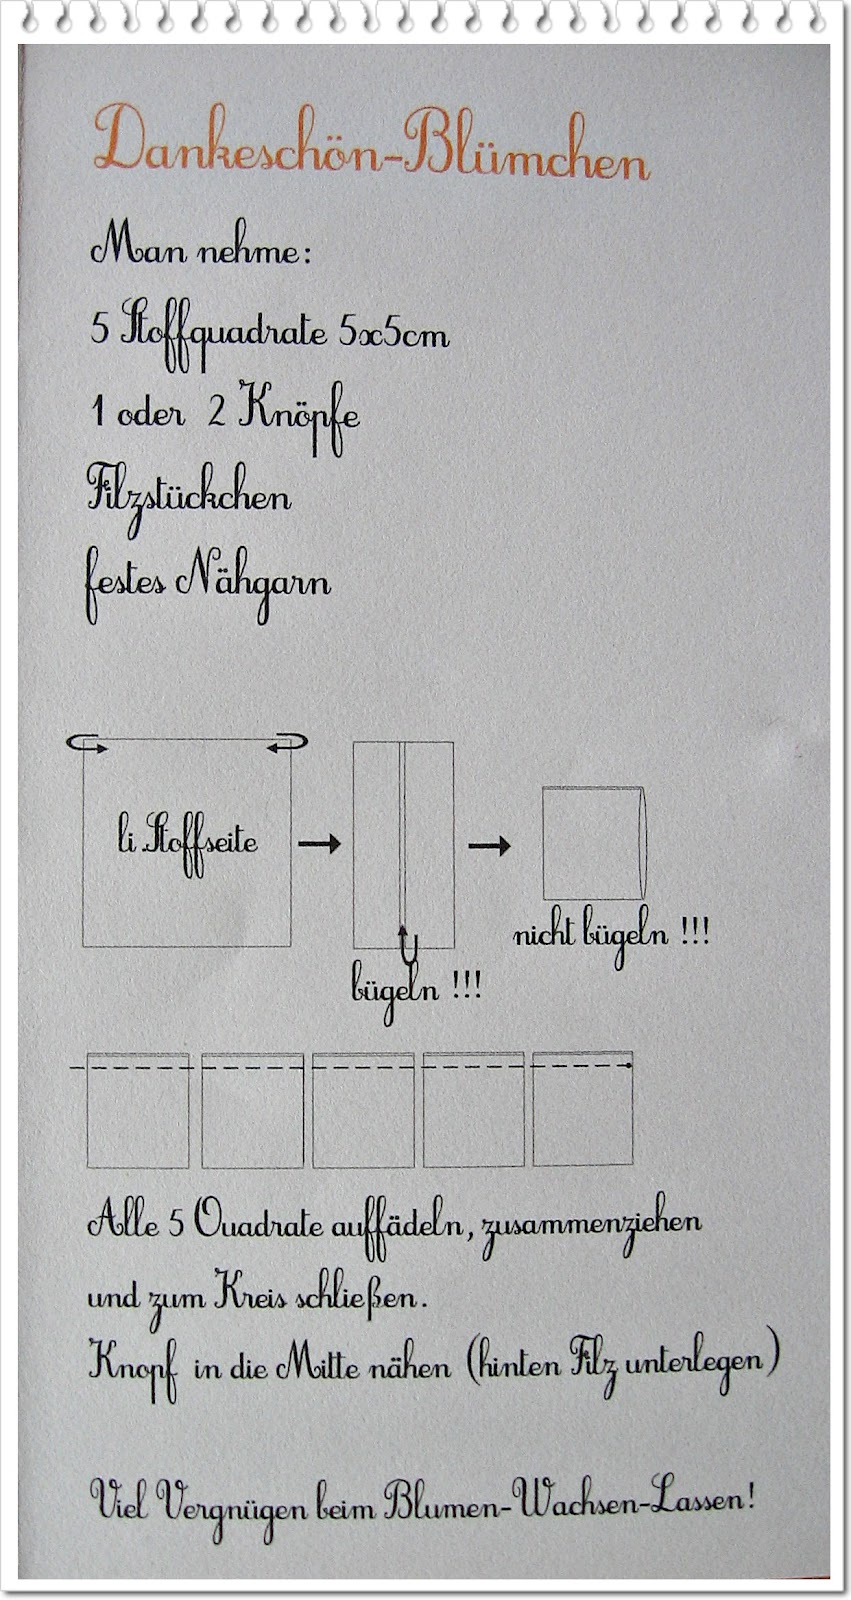 Dankeschön-Blümchen
Man nehme:
5 Stoffquadrate 5x5cm
1 oder 2 Knöpfe
Filzstückchen
festes Nähgarn
li.Stoffseite
nicht bügeln !!!
bügeln !!!
Alle 5 Quadrate auffädeln, zusammenziehen
und zum Kreis schließen.
Knopf in die Mitte nähen (hinten Filz unterlegen)
Viel Vergnügen beim Blumen-Wachsen-Lassen!